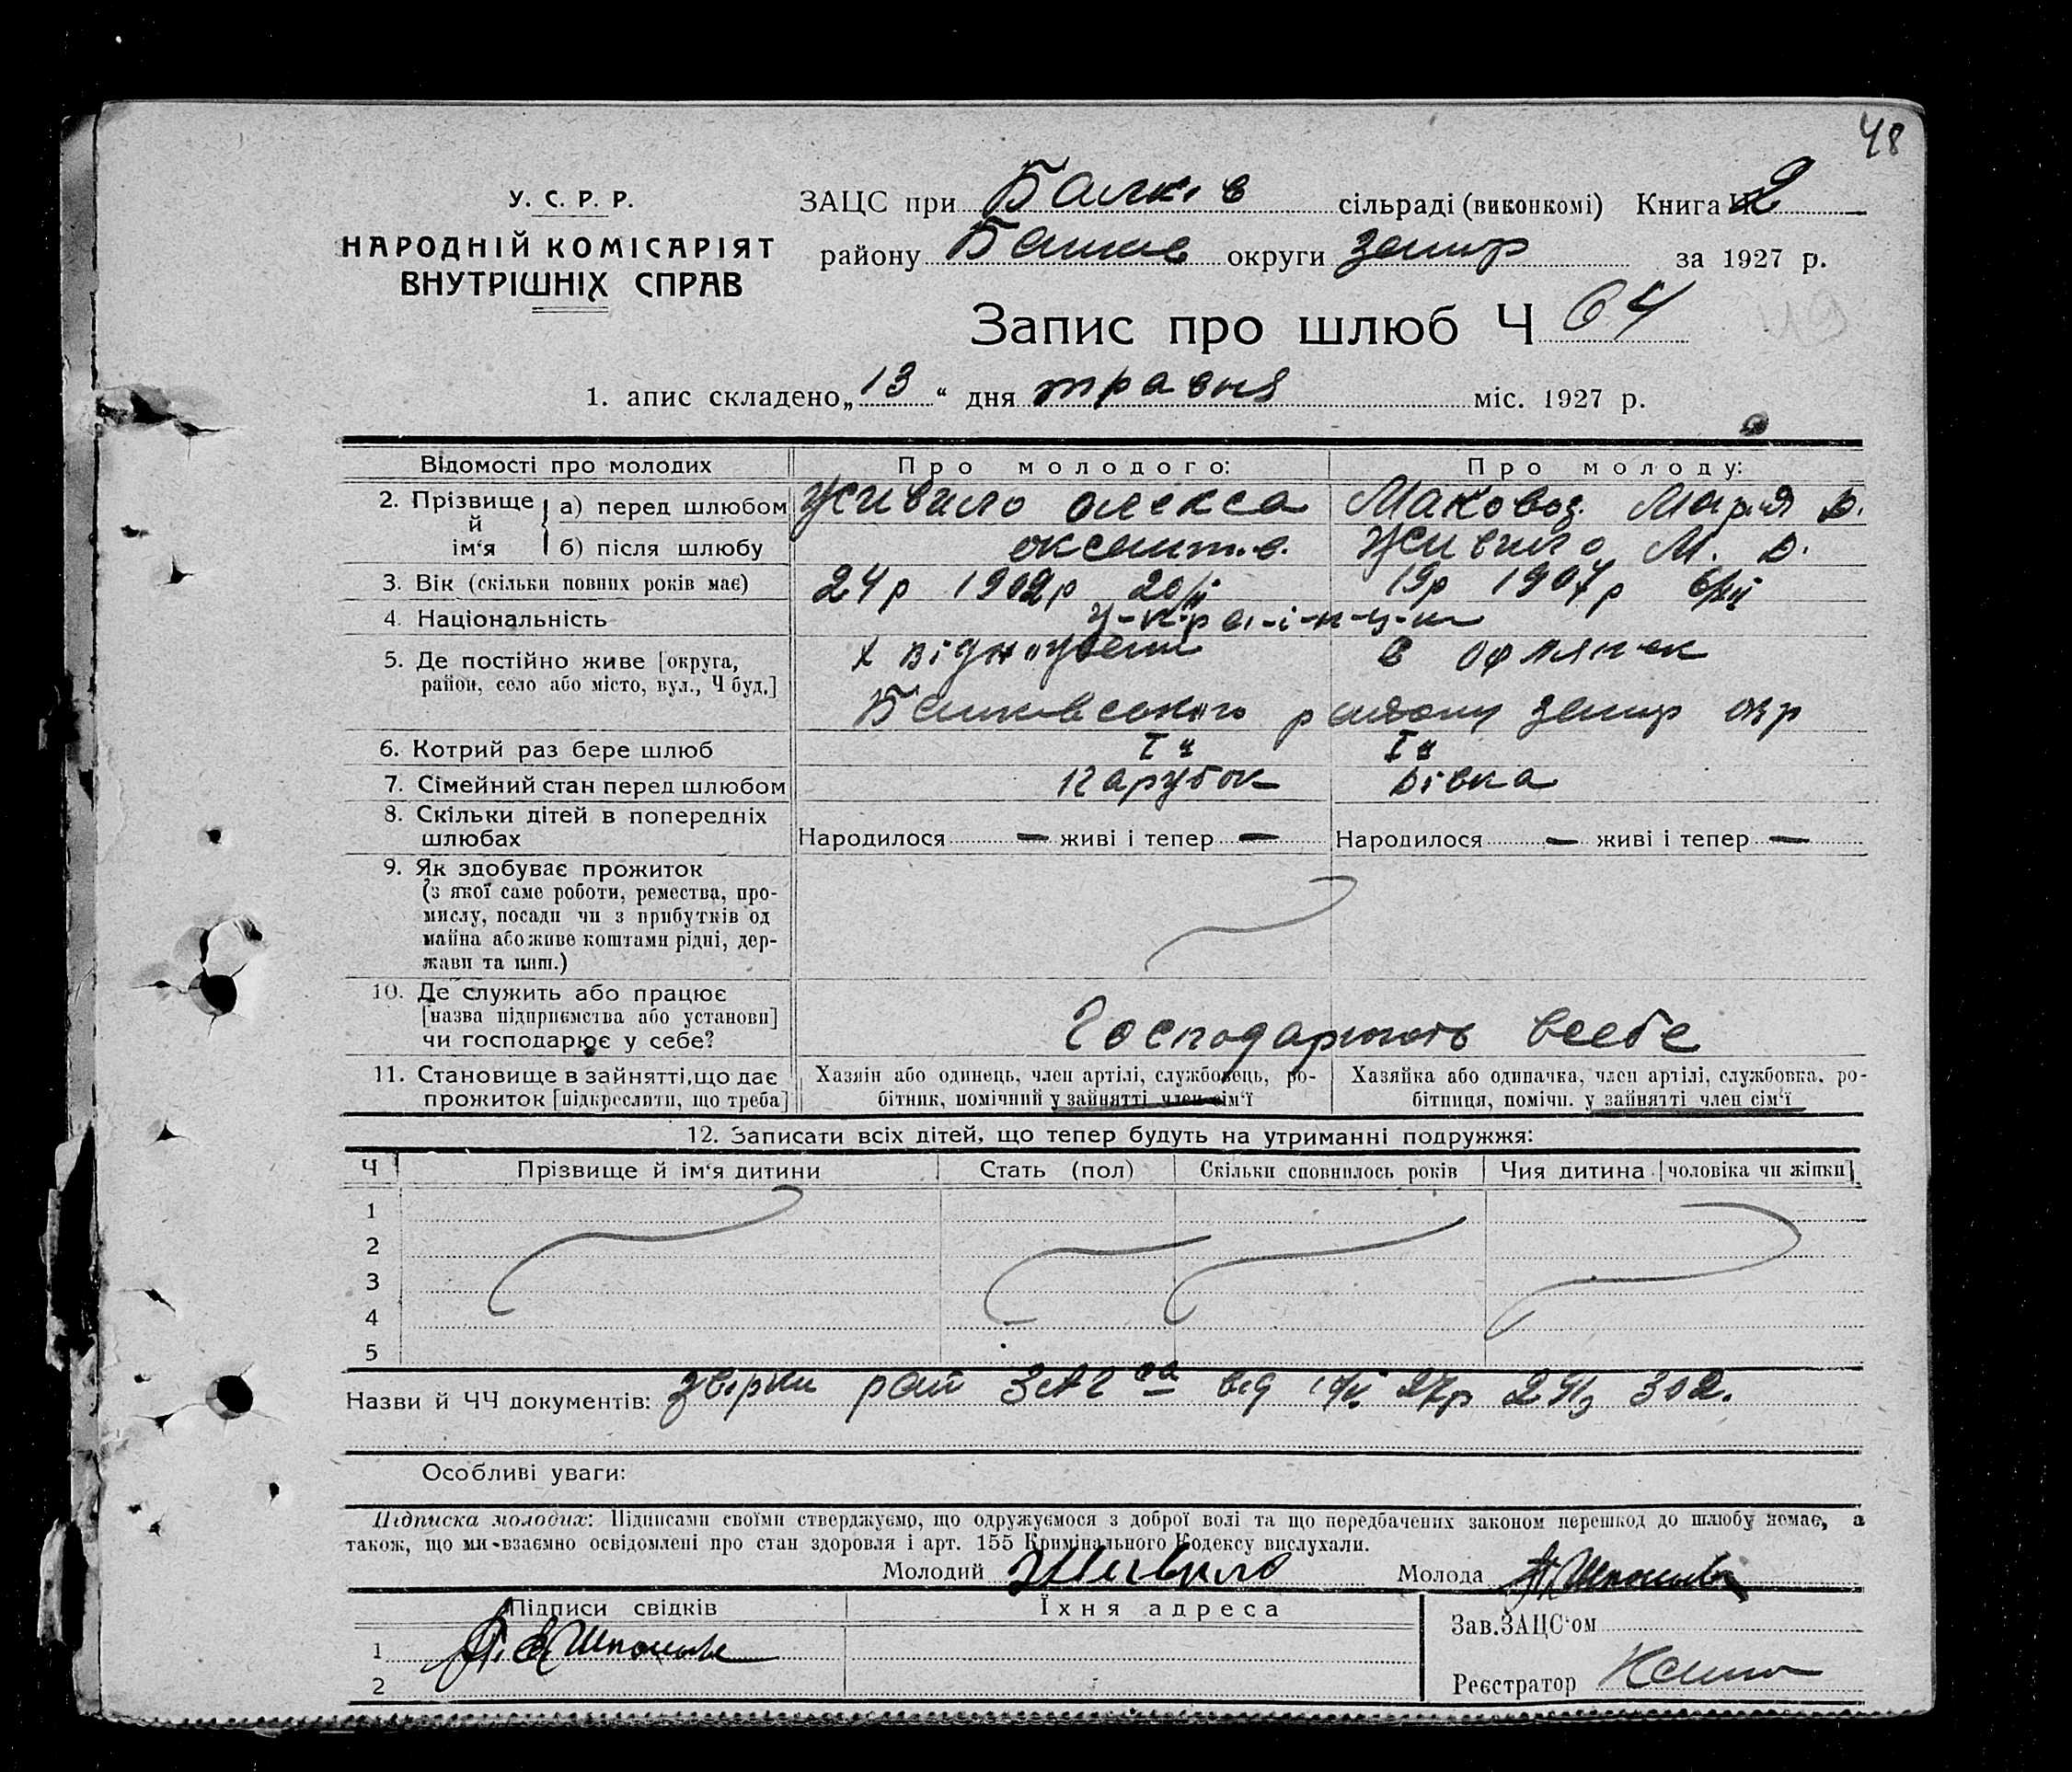 48
У. С. Р. Р.
НАРОДНІЙ КОМІСАРІЯТ
ВНУТРІШНІХ СПРАВ
ЗАЦС при Балків сільраді (виконкомі) Книга № 2
району округи за 1927 р.
Запис про шлюб Ч 64
49
1. апис складено „13“ дня травня міс. 1927 р.
Відомості про молодих
Про молодого:
Про молоду:
2. Прізвище й ім‘я
а) перед шлюбом
Живило Олекса
Маковоз Мария
б) після шлюбу
Живило М. Д.
3. Вік (скільки повних років має)
24р 1902р 20/ІІ
19р 1907р
4. Національність
У-к-р-а-ї-н-ц-и
5. Де постійно живе [округа,
район, село або місто, вул., Ч буд.]
району окр
6. Котрий раз бере шлюб
І й
І й
7. Сімейний стан перед шлюбом
Парубок
Дівка
8. Скільки дітей в попередніх
шлюбах
Народилося — живі і тепер —
Народилося — живі і тепер —
9. Як здобуває прожиток
(з якої саме роботи, ремества, про-
мислу, посади чи з прибутків од
майна або живе коштами рідні, дер-
жави та инш.)
10. Де служить або працює
[назва підприємства або установи]
чи господарює у себе?
Господарюють всебе
11. Становище в зайнятті, що дає
прожиток [підкреслити, що треба]
Хазяїн або одинець, член артілі, службовець, ро-
бітник, помічний у зайнятті член сім‘ї
Хазяйка або одиначка, член артілі, службовка, ро-
бітниця, помічн. у зайнятті член сім‘ї
12. Записати всіх дітей, що тепер будуть на утриманні подружжя:
Ч
Прізвище й ім‘я дитини
Стать (пол)
Скільки сповнилось років
Чия дитина [чоловіка чи жінки]
1
2
3
4
5
Назви й ЧЧ документів: рай від 27р 302.
Особливі уваги:
Підписка молодих: Підписами своїми стверджуємо, що одружуємося з доброї волі та що передбачених законом перешкод до шлюбу немає, а
також, що ми взаємно освідомлені про стан здоровля і арт. 155 Кримінального Кодексу вислухали.
Молодий Живило Молода
Підписи свідків
Їхня адреса
Зав. ЗАЦС‘ом
1
2
Реєстратор